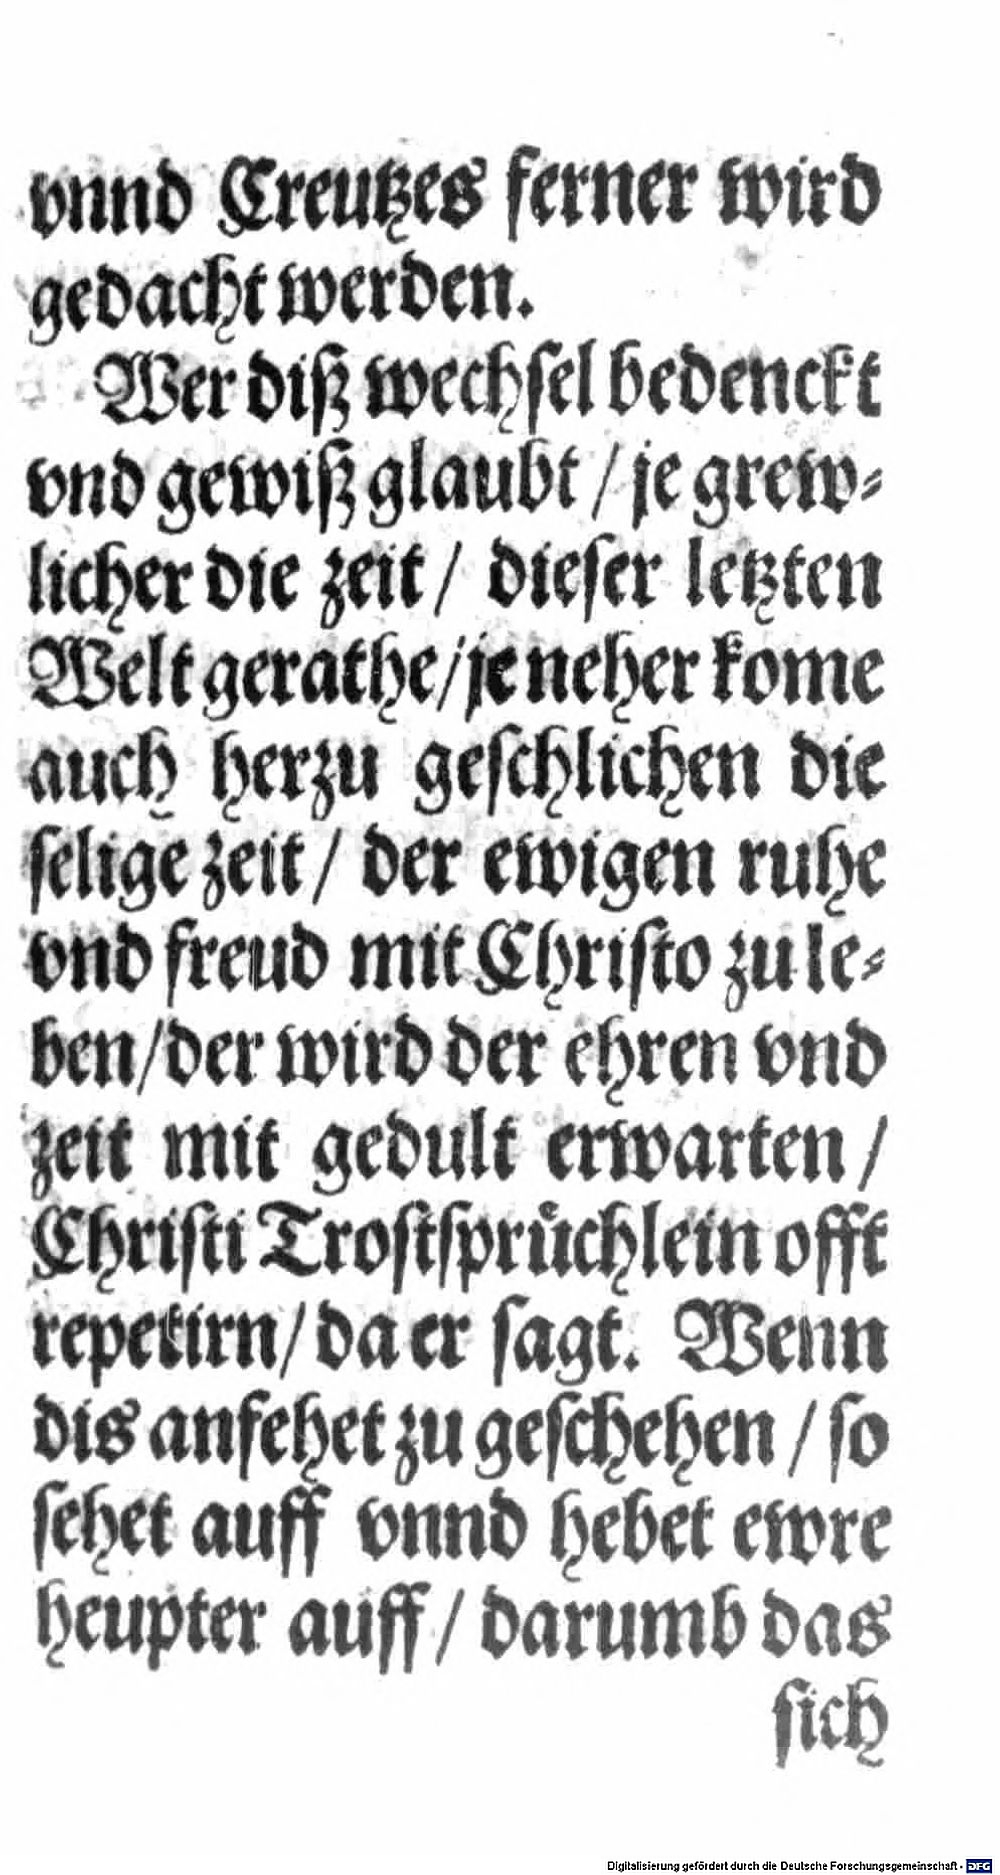 vnnd Creutzes ferner wird
gedacht werden.
Wer diß wechſel bedenckt
vnd gewiß glaubt / je grew⸗
licher die zeit / dieſer letzten
Welt gerathe / je neher kome
auch herzu geſchlichen die
ſelige zeit / der ewigen ruhe
vnd freud mit Chriſto zu le⸗
ben / der wird der ehren vnd
zeit mit gedult erwarten /
Chriſti Troſtſprüchlein offt
repetirn / da er ſagt. Wenn
dis anfehet zu geſchehen / ſo
ſehet auff vnnd hebet ewre
heupter auff / darumb das
ſich
Digitalisierung gefördert durch die Deutsche Forschungsgemeinschaft - DFG